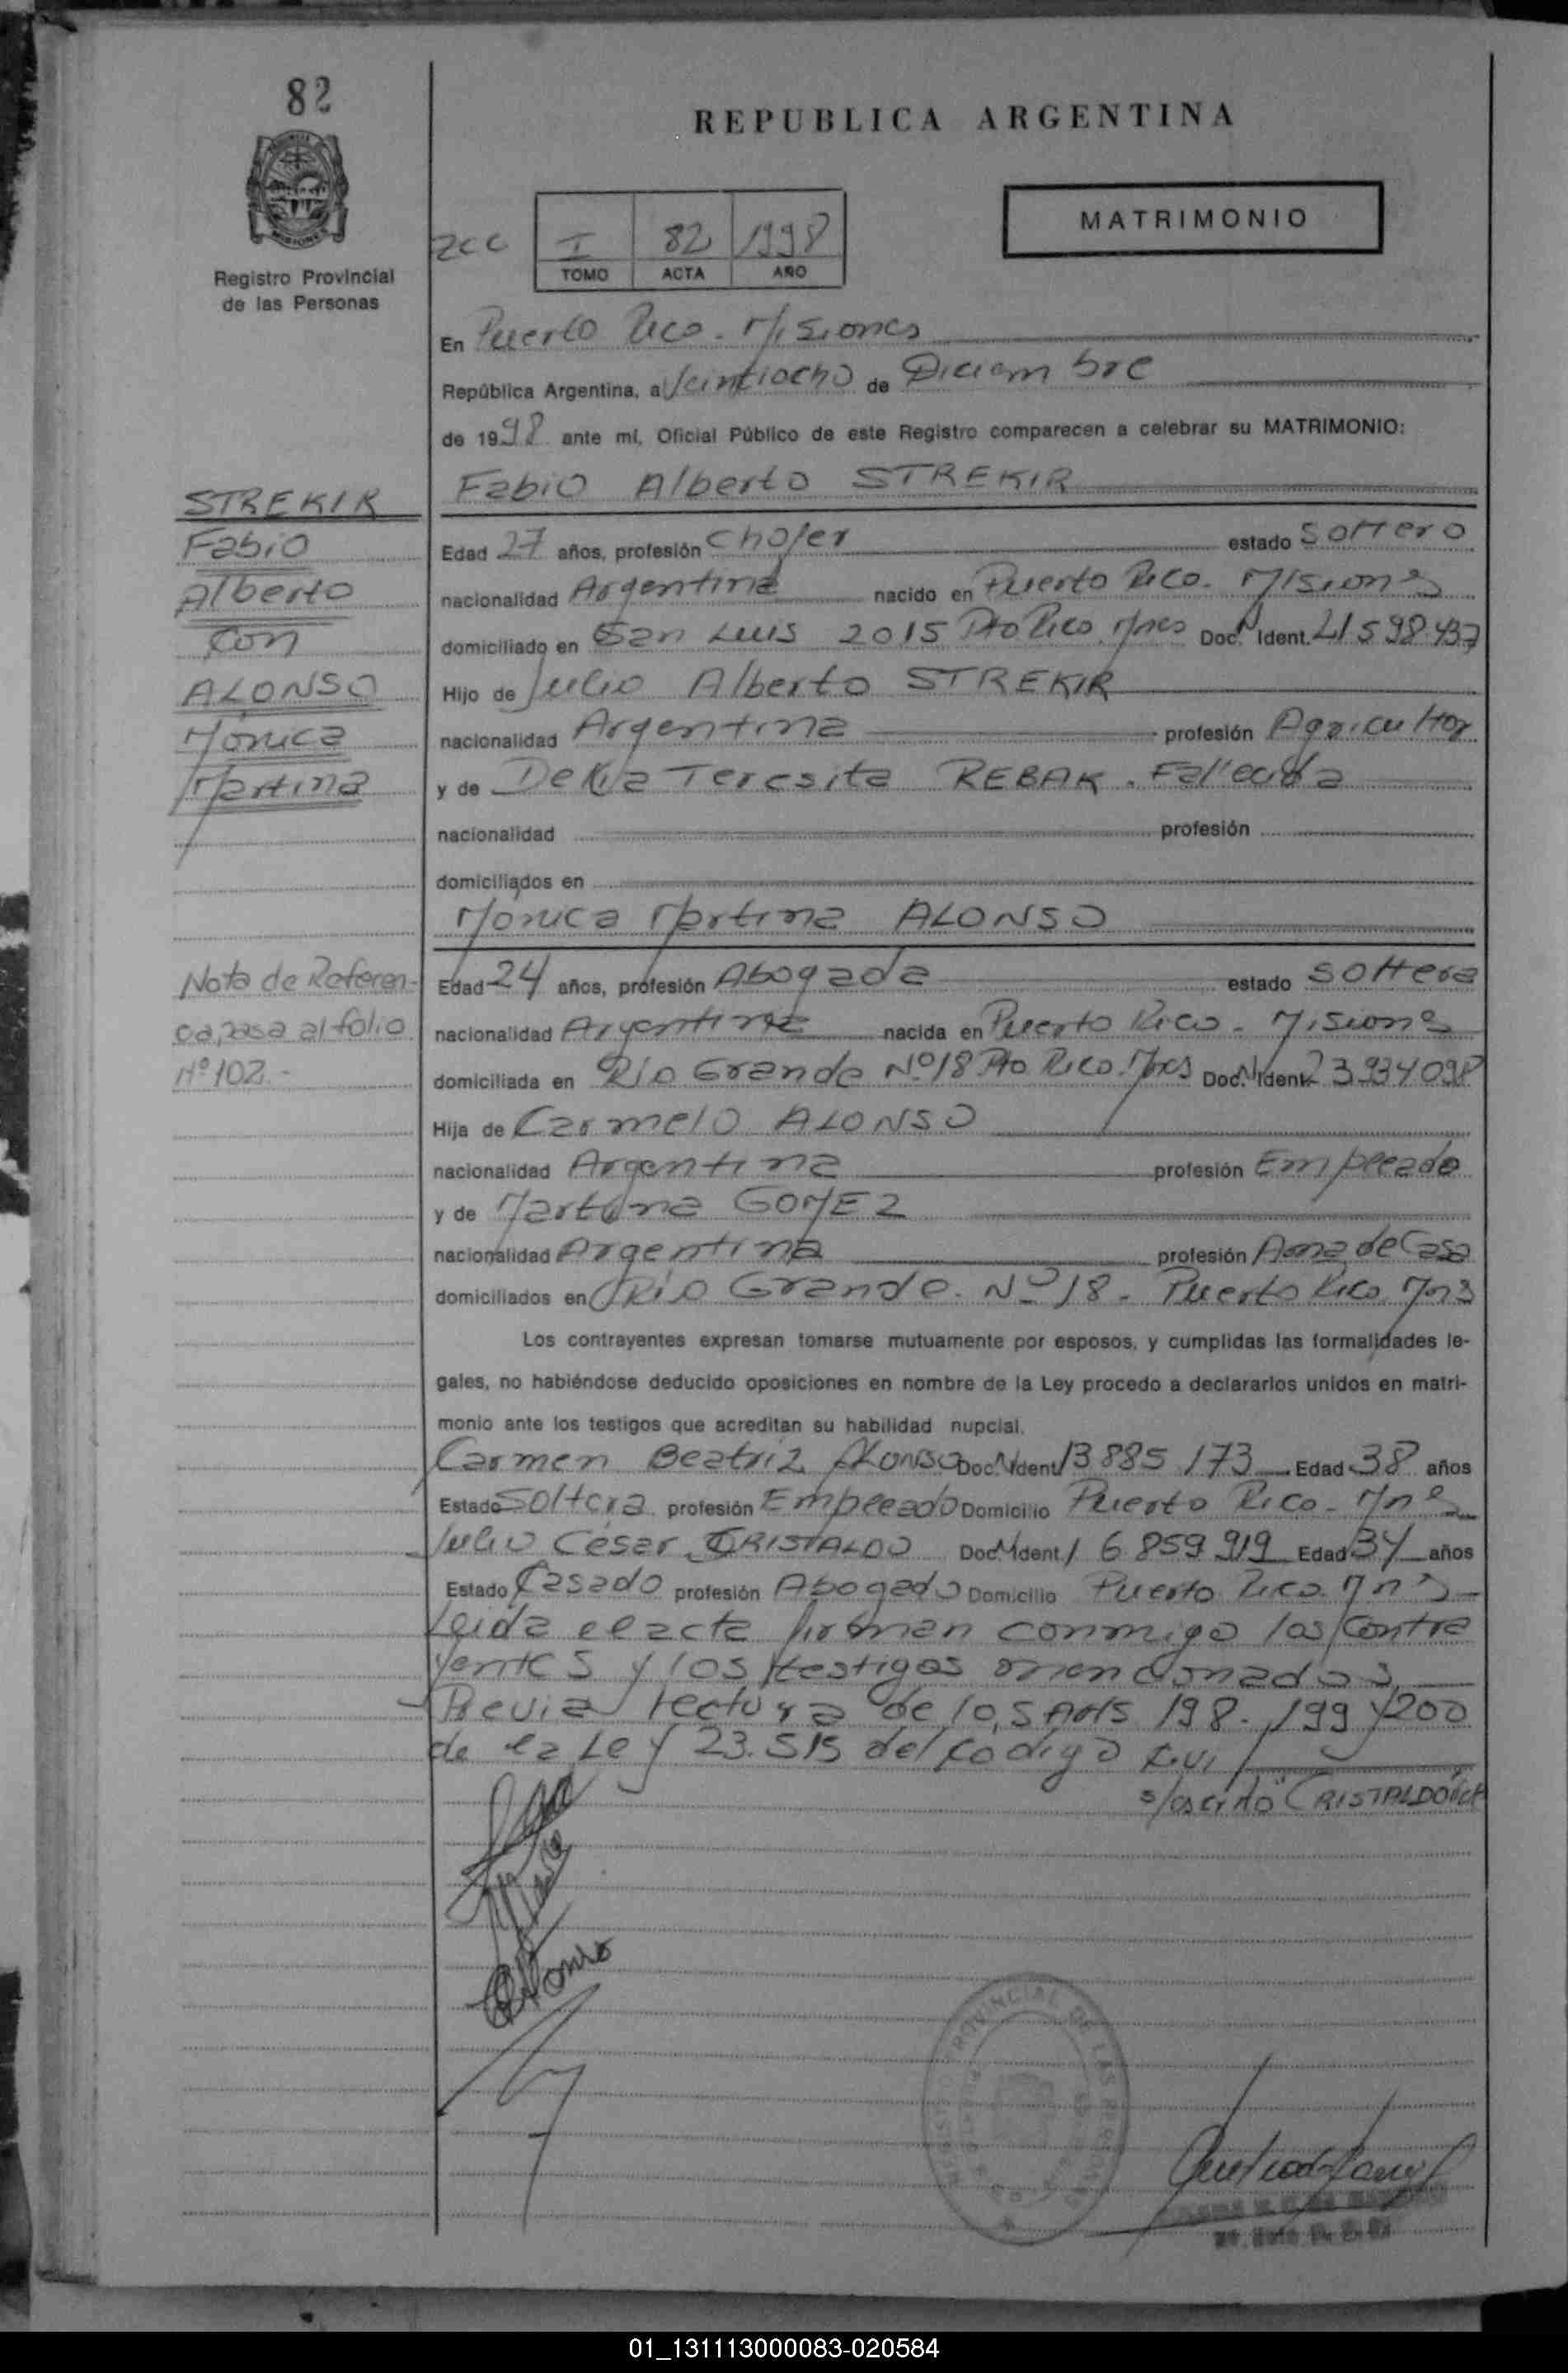 82
REPUBLICA ARGENTINA
MATRIMONIO
I 82 1998
TOMO ACTA AÑO
Registro Provincial
de las Personas
En Puerto Rico - Misiones
República Argentina, a Veintiocho de Diciembre
de 1998 ante mí, Oficial Público de este Registro comparecen a celebrar su MATRIMONIO:
Fabio Alberto STREKIR
STREKIR
Fabio
Alberto
con
ALONSO
Mónica
Martina
Edad 27 años, profesión Chofer estado Soltero
nacionalidad Argentina nacido en Puerto Rico - Misiones
domiciliado en San Luis 2015 Pto Rico Mnes Doc. N Ident. 21598437
Hijo de Julio Alberto STREKIR
nacionalidad Argentina profesión Agricultor
y de Delia Teresita REBAK - Fallecida
nacionalidad profesión
domiciliados en
Monica Martina ALONSO
Nota de Referen-
cia, pasa al folio
Nº 102.-
Edad 24 años, profesión Abogada estado Soltera
nacionalidad Argentina nacida en Puerto Rico - Misiones
domiciliada en Río Grande Nº 18 Pto Rico. Mnes Doc. N Ident. 23934098
Hija de Carmelo ALONSO
nacionalidad Argentina profesión Empleado
y de Martina GOMEZ
nacionalidad Argentina profesión Ama de Casa
domiciliados en Río Grande. Nº 18 - Puerto Rico. Mns
Los contrayentes expresan tomarse mutuamente por esposos, y cumplidas las formalidades le-
gales, no habiéndose deducido oposiciones en nombre de la Ley procedo a declararlos unidos en matri-
monio ante los testigos que acreditan su habilidad nupcial.
Carmen Beatriz ALONSO Doc. N Ident. 13885173 Edad 38 años
Estado Soltera profesión Empleado Domicilio Puerto Rico - Mnes
Julio César CRISTALDO Doc. N Ident. 16859919 Edad 34 años
Estado Casado profesión Abogado Domicilio Puerto Rico Mns
Leida el acta firman conmigo los contra
yentes y los testigos mencionados,
Previa lectura de los Arts 198. 199 y 200
de la Ley 23.515 del Codigo Civil
s/escrito "CRISTALDO"
Alonso
PROVINCIAL DE LAS PERSONAS
01_131113000083-020584